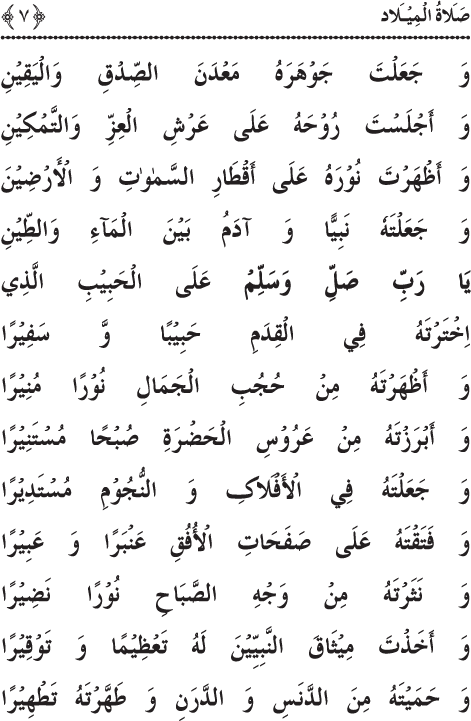 صَلَاةُ الْمِيْلَاد ﴿٧﴾
وَ جَعَلْتَ جَوْهَرَهُ مَعْدَنَ الصِّدْقِ وَالْيَقِيْنِ
وَ أَجْلَسْتَ رُوْحَهُ عَلَى عَرْشِ الْعِزِّ وَالتَّمْكِيْنِ
وَ أَظْهَرْتَ نُوْرَهُ عَلَى أَقْطَارِ السَّمٰوٰتِ وَ الْأَرْضِيْنَ
وَ جَعَلْتَهُ نَبِيًّا وَ آدَمُ بَيْنَ الْمَآءِ وَالطِّيْنِ
يَا رَبِّ صَلِّ وَسَلِّمْ عَلَى الْحَبِيْبِ الَّذِي
اِخْتَرْتَهُ فِي الْقِدَمِ حَبِيْبًا وَّ سَفِيْرًا
وَ أَظْهَرْتَهُ مِنْ حُجُبِ الْجَمَالِ نُوْرًا مُنِيْرًا
وَ أَبْرَزْتَهُ مِنْ عَرُوْسِ الْحَضْرَةِ صُبْحًا مُسْتَنِيْرًا
وَ جَعَلْتَهُ فِي الْأَفْلَاكِ وَ النُّجُوْمِ مُسْتَدِيْرًا
وَ فَتَقْتَهُ عَلَى صَفَحَاتِ الْأُفُقِ عَنْبَرًا وَ عَبِيْرًا
وَ نَثَرْتَهُ مِنْ وَجْهِ الصَّبَاحِ نُوْرًا نَضِيْرًا
وَ أَخَذْتَ مِيْثَاقَ النَّبِيِّيْنَ لَهُ تَعْظِيْمًا وَ تَوْقِيْرًا
وَ حَمَيْتَهُ مِنَ الدَّنَسِ وَ الدَّرَنِ وَ طَهَّرْتَهُ تَطْهِيْرًا